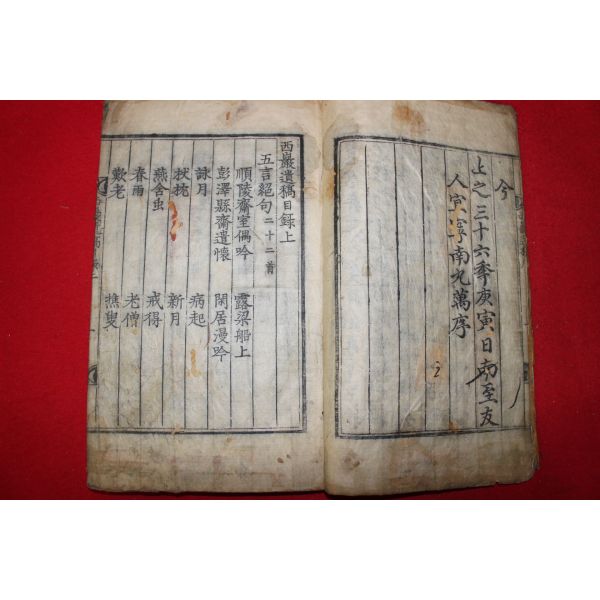 今
上之三十六秊庚寅日南至友
人宜寧南九萬序
西巖遺稿目録上
五言絶句二十二首
順陵齋室偶吟 露梁船上
彭澤縣齋遣懷 閑居漫吟
詠月 病起
枕 新月
燕含虫 戒得
春雨 老僧
歎老 樵叟
2